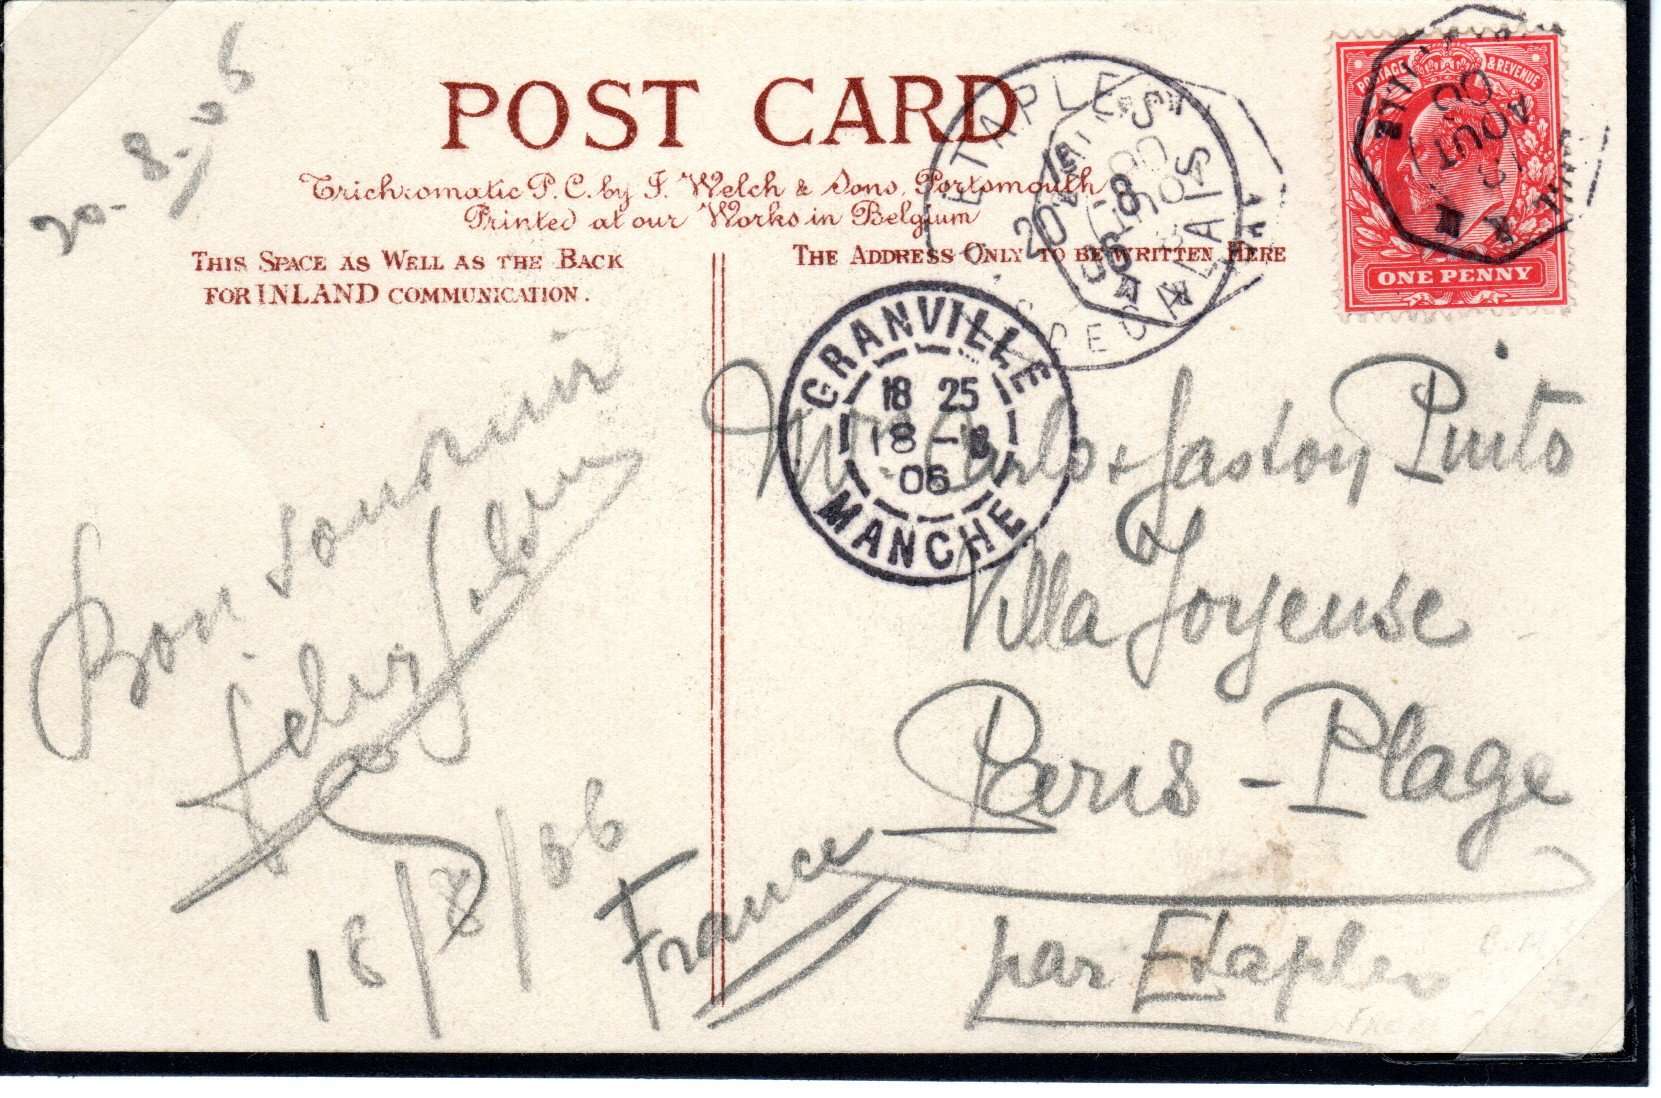 20-8-06
POST CARD
Trichromatic P.C. by J. Welch & Sons, Portsmouth
Printed at our Works in Belgium
THIS SPACE AS WELL AS THE BACK
FOR INLAND COMMUNICATION.
THE ADDRESS ONLY TO BE WRITTEN HERE
ETAPLES
20 8
06
PAS DE CALAIS
POSTAGE & REVENUE
13
AOUT
06
ONE PENNY
GRANVILLE
18 25
18-8
06
MANCHE
Bon souvenir
18/8/06
Carlo & Gaston Pinto
Villa Joyeuse
Paris-Plage
par Etaples
France